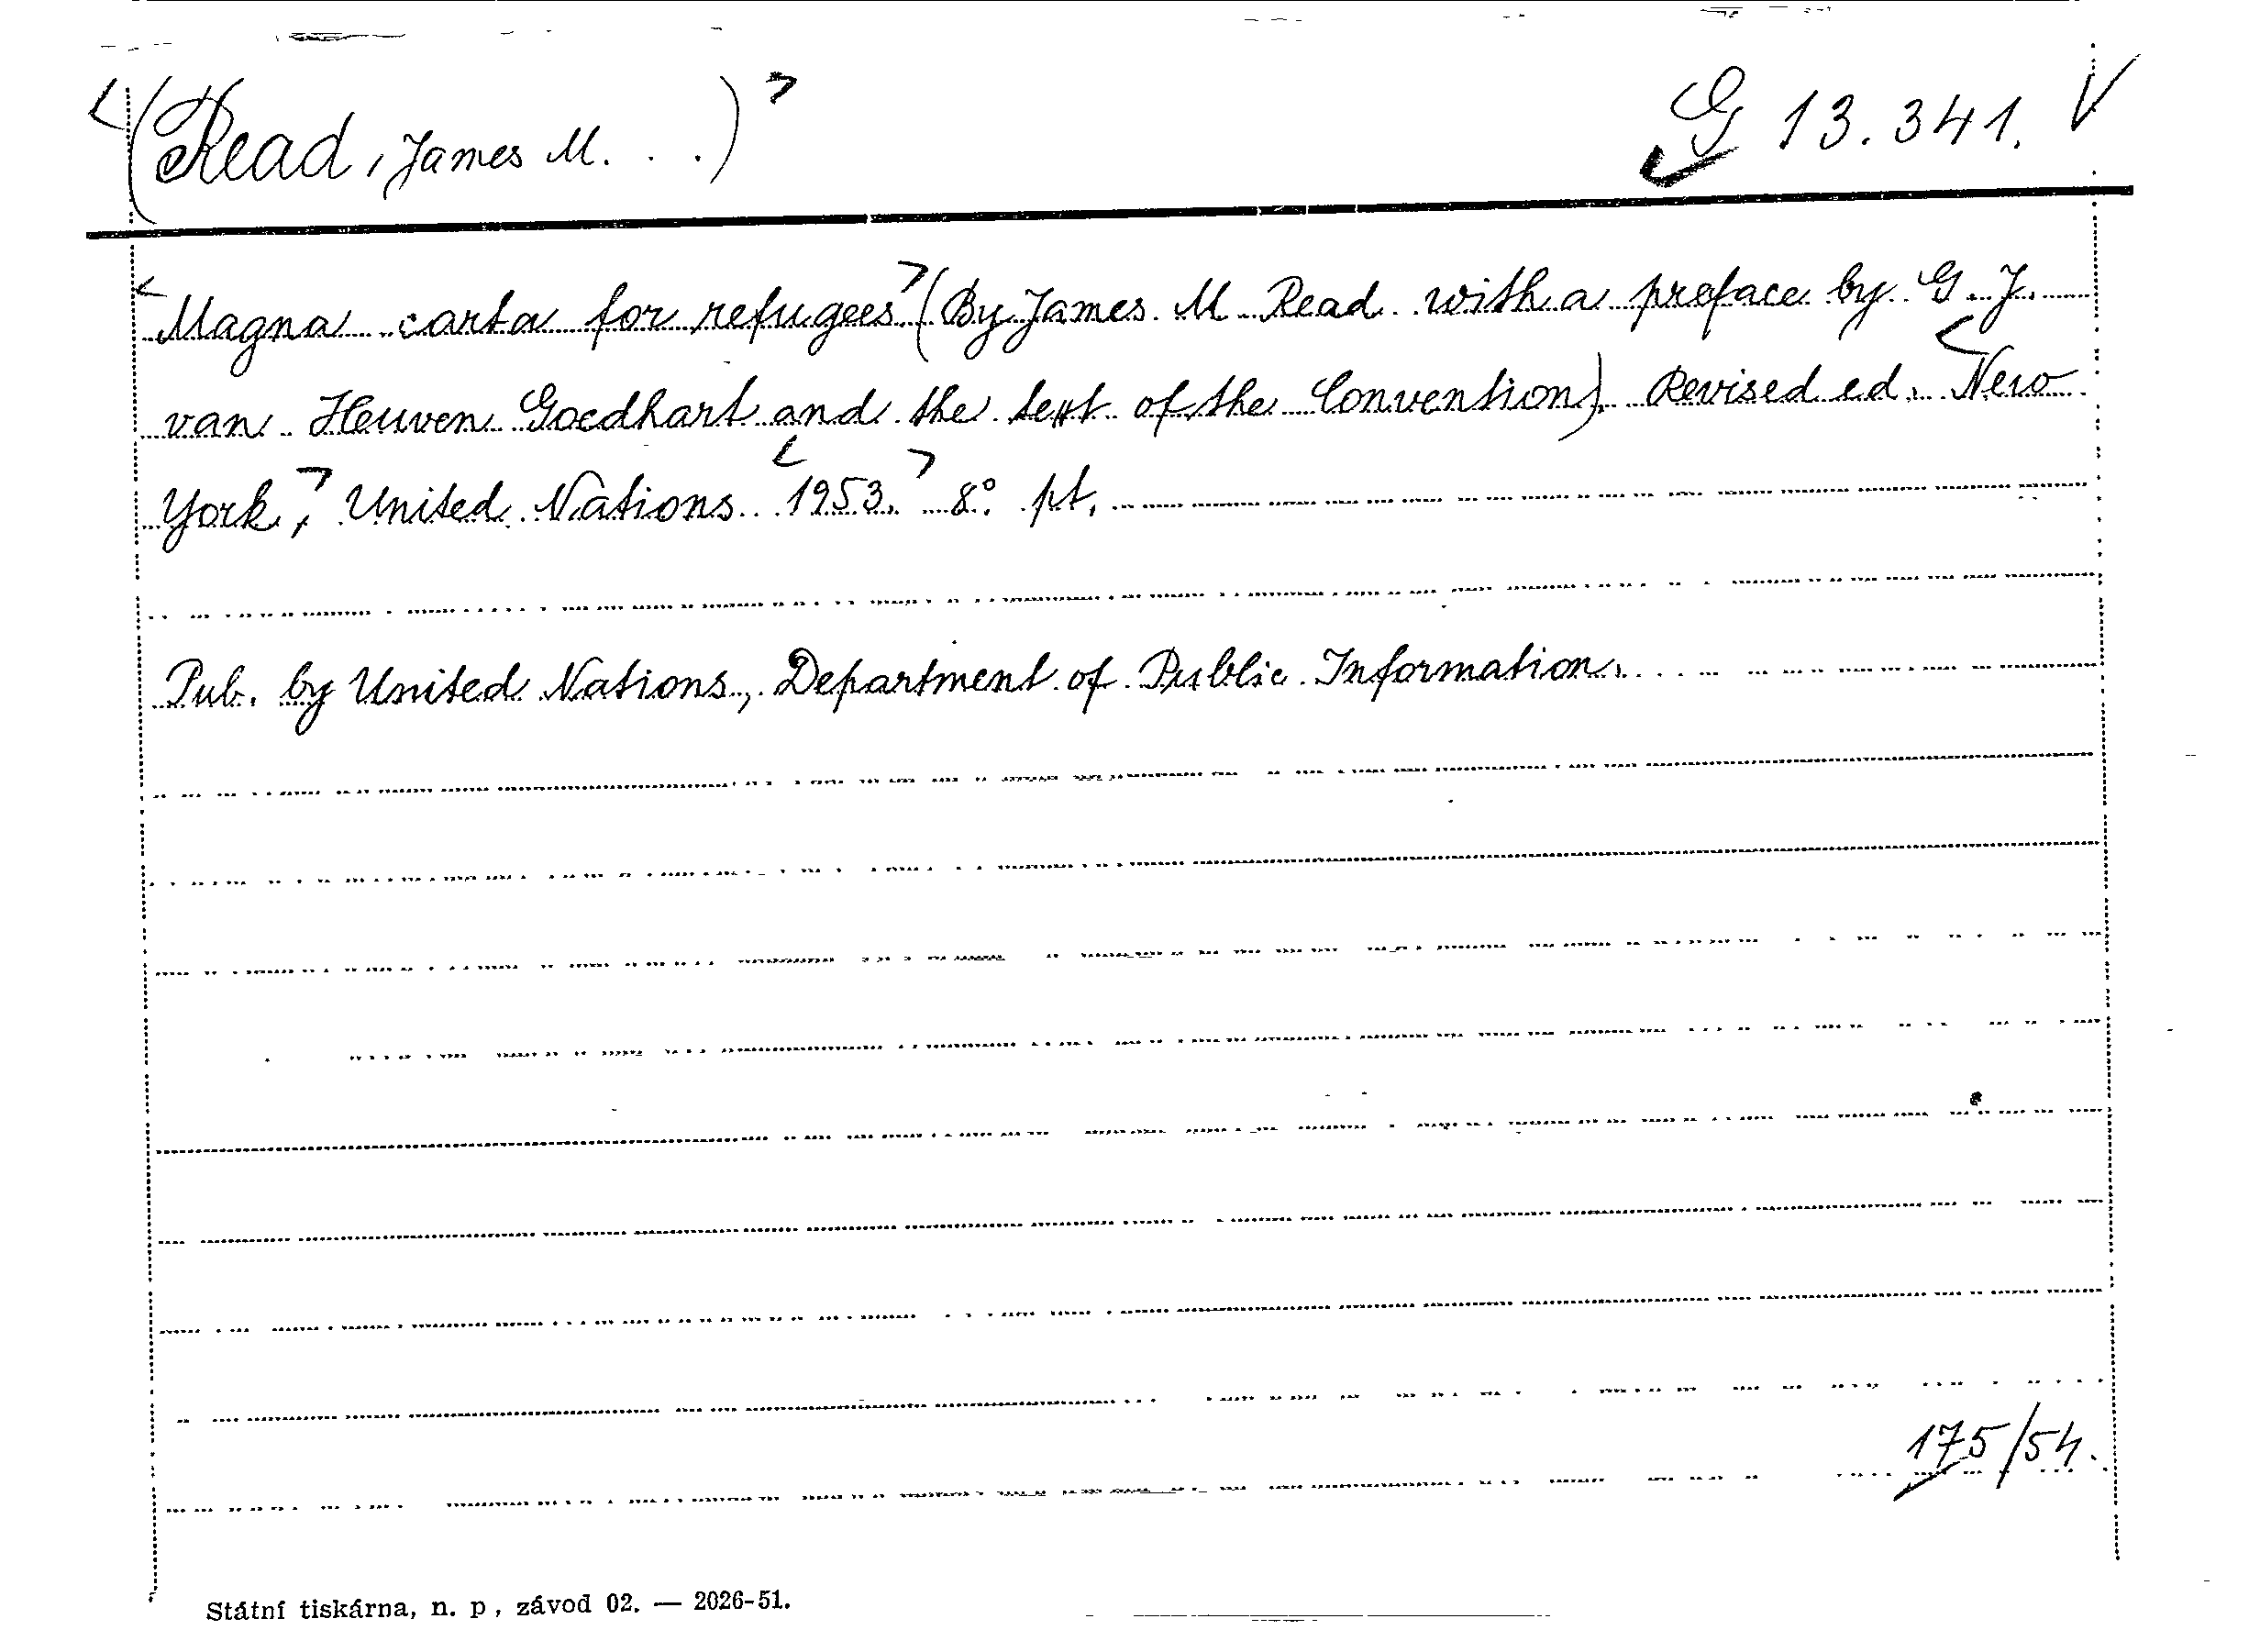 <(Read, James M. . .)> G 13.341. V
<Magna carta for refugees> (By James M. Read with a preface by G. J.
van Heuven Goedhart and the text of the Convention). Revised ed. <New
York,> United Nations <1953.> 8°. pt.
Pub. by United Nations, Department of Public Information.
175/54.
Státní tiskárna, n. p., závod 02. — 2026-51.